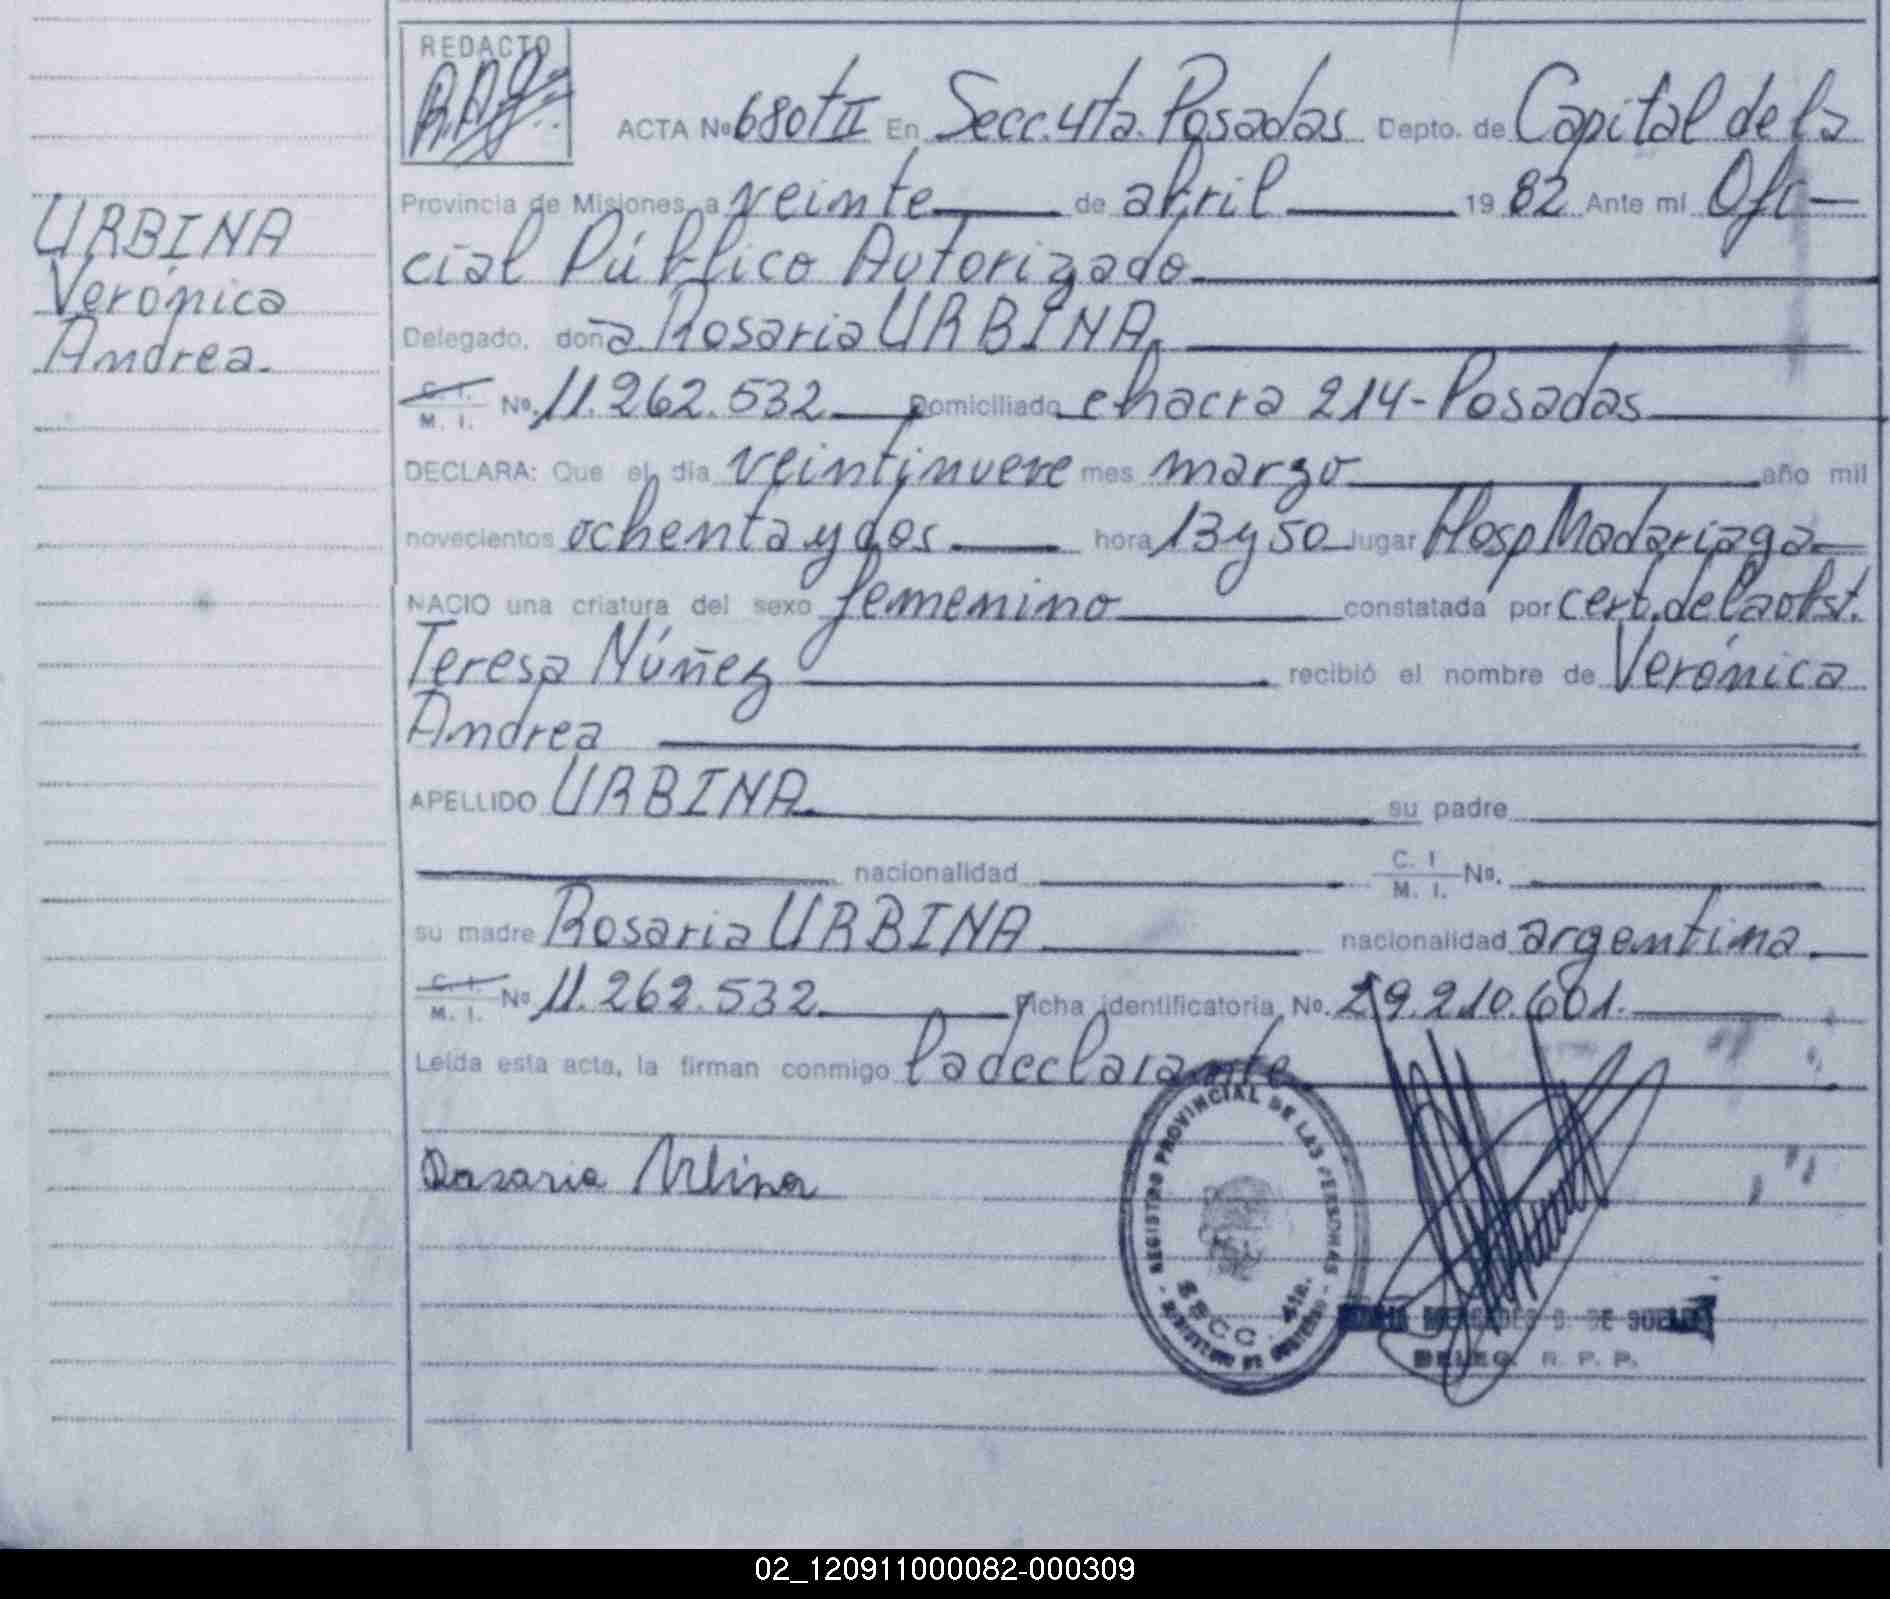 REDACTO
ACTA Nº 680 tII En Secc. 4ta. Posadas Depto. de Capital de la
Provincia de Misiones, a veinte de abril 1982 Ante mí Ofi-
cial Público Autorizado
Delegado, doña Rosaria URBINA
C. I. M. I. Nº. 11.262.532 Domiciliado chacra 214 - Posadas
DECLARA: Que el día veintinueve mes marzo año mil
novecientos ochenta y dos hora 13 y 50 lugar Hosp Madariaga
NACIO una criatura del sexo femenino constatada por cert. de la obst.
Teresa Núñez recibió el nombre de Verónica
Andrea
APELLIDO URBINA su padre
nacionalidad C. I M. I. Nº.
su madre Rosaria URBINA nacionalidad argentina
C. I. M. I. Nº 11.262.532 Ficha identificatoria No. 29.210.601.
Leída esta acta, la firman conmigo la declarante
Rosaria Urbina
URBINA
Verónica
Andrea.
REGISTRO PROVINCIAL DE LAS PERSONAS
SECC. 4ta.
DELEG. R. P. P.
02_120911000082-000309